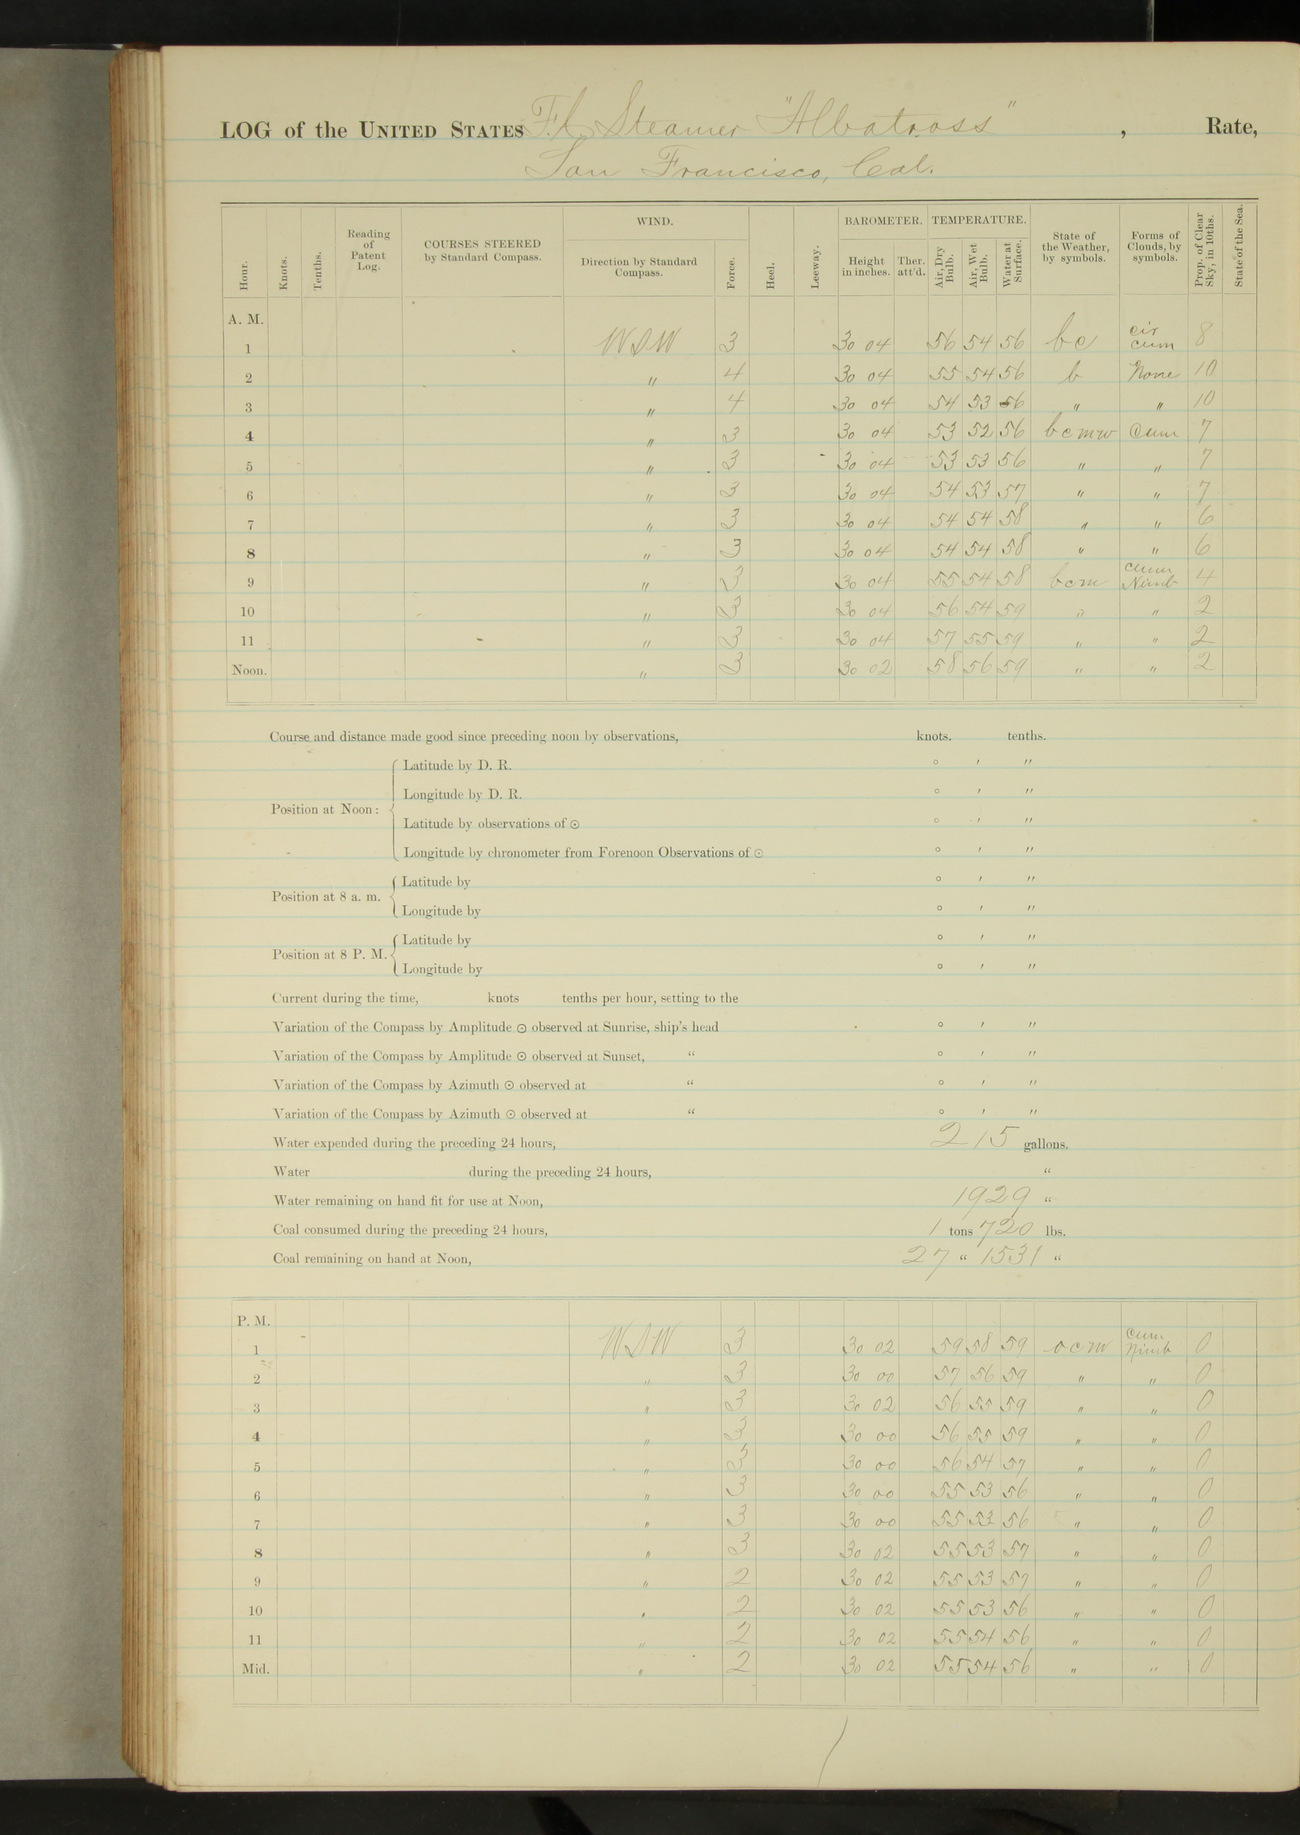 LOG of the UNITED STATES F.C. Steamer "Albatross", Rate,
San Francisco, Cal.
Hour. Knots. Tenths. Reading of Patent Log. COURSES STEERED by Standard Compass. WIND. Direction by Standard Compass. Force. Heel. Leeway. BAROMETER. Height in inches. Ther. att'd. TEMPERATURE. Air, Dry Bulb. Air, Wet Bulb. Water at Surface. State of the Weather, by symbols. Forms of Clouds, by symbols. Prop. of Clear Sky, in 10ths. State of the Sea.
A. M.
1 WSW 3 30 04 56 54 56 bc cir cum 8
2 " 4 30 04 55 54 56 b None 10
3 " 4 30 04 54 53 56 " " 10
4 " 3 30 04 53 52 56 bcmw Cum 7
5 " 3 30 04 53 53 56 " " 7
6 " 3 30 04 54 53 57 " " 7
7 " 3 30 04 54 54 58 " " 6
8 " 3 30 04 54 54 58 " " 6
9 " 3 30 04 55 54 58 bcm Cum Nimb 4
10 " 3 30 04 56 54 59 " " 2
11 " 3 30 04 57 55 59 " " 2
Noon. " 3 30 02 58 56 59 " " 2
Course and distance made good since preceding noon by observations, knots. tenths.
Latitude by D. R. ° ′ ″
Longitude by D. R. ° ′ ″
Position at Noon:
Latitude by observations of ☉ ° ′ ″
Longitude by chronometer from Forenoon Observations of ☉ ° ′ ″
Position at 8 a. m.
Latitude by ° ′ ″
Longitude by ° ′ ″
Position at 8 P. M.
Latitude by ° ′ ″
Longitude by ° ′ ″
Current during the time, knots tenths per hour, setting to the
Variation of the Compass by Amplitude ☉ observed at Sunrise, ship's head ° ′ ″
Variation of the Compass by Amplitude ☉ observed at Sunset, “ ° ′ ″
Variation of the Compass by Azimuth ☉ observed at “ ° ′ ″
Variation of the Compass by Azimuth ☉ observed at “ ° ′ ″
Water expended during the preceding 24 hours, 215 gallons.
Water during the preceding 24 hours, “
Water remaining on hand fit for use at Noon, 1929 “
Coal consumed during the preceding 24 hours, 1 tons 720 lbs.
Coal remaining on hand at Noon, 27 “ 1531 “
P. M.
1 WSW 3 30 02 59 58 59 ocm Cum Nimb 0
2 " 3 30 00 57 56 59 " " 0
3 " 3 30 02 56 55 59 " " 0
4 " 3 30 00 56 55 59 " " 0
5 " 3 30 00 56 54 57 " " 0
6 " 3 30 00 55 53 56 " " 0
7 " 3 30 00 55 53 56 " " 0
8 " 3 30 02 55 53 57 " " 0
9 " 2 30 02 55 53 57 " " 0
10 " 2 30 02 55 53 56 " " 0
11 " 2 30 02 55 54 56 " " 0
Mid. " 2 30 02 55 54 56 " " 0